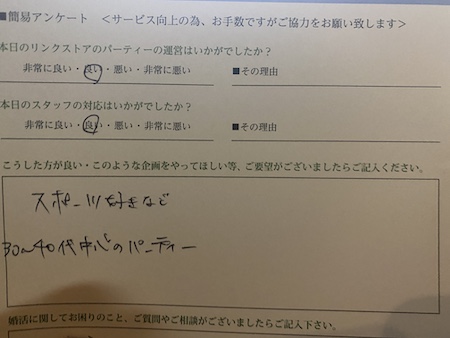 ■簡易アンケート ＜サービス向上の為、お手数ですがご協力をお願い致します＞
本日のリンクストアのパーティーの運営はいかがでしたか？
非常に良い・良い・悪い・非常に悪い ■その理由
本日のスタッフの対応はいかがでしたか？
非常に良い・良い・悪い・非常に悪い ■その理由
こうした方が良い・このような企画をやってほしい等、ご要望がございましたらご記入ください。
スポーツ好きなど
30〜40代中心のパーティー
婚活に関してお困りのこと、ご質問やご相談がございましたらご記入下さい。